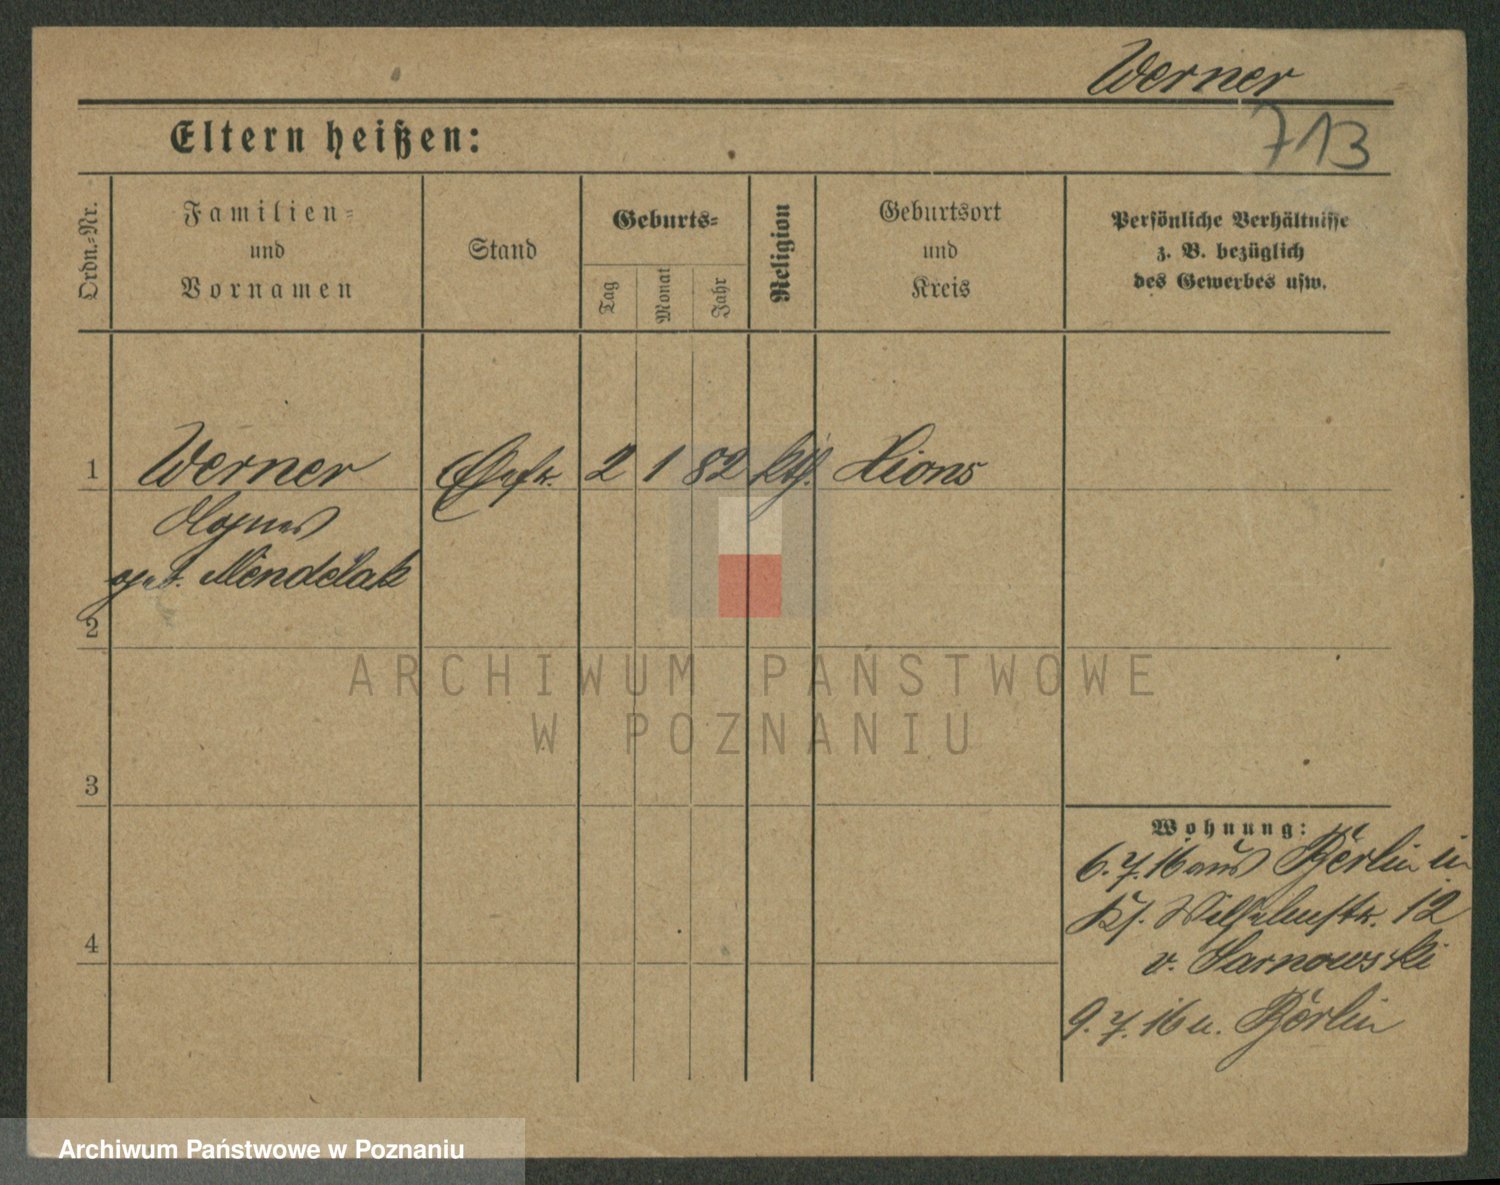 Werner
Eltern heißen:
713
Ordn.-Nr.
Familien-
und
Vornamen
Stand
Geburts-
Tag
Monat
Jahr
Religion
Geburtsort
und
Kreis
Persönliche Verhältnisse
z. B. bezüglich
des Gewerbes usw.
1 Werner 2 1 82 kth. Xions
Agnes
geb. Mendelak
2
ARCHIWUM PAŃSTWOWE
W POZNANIU
3
Wohnung:
6.7.16 aus Berlin in
Wilhelmstr. 12
v. Sarnowski
4
9.7.16 n. Berlin
Archiwum Państwowe w Poznaniu